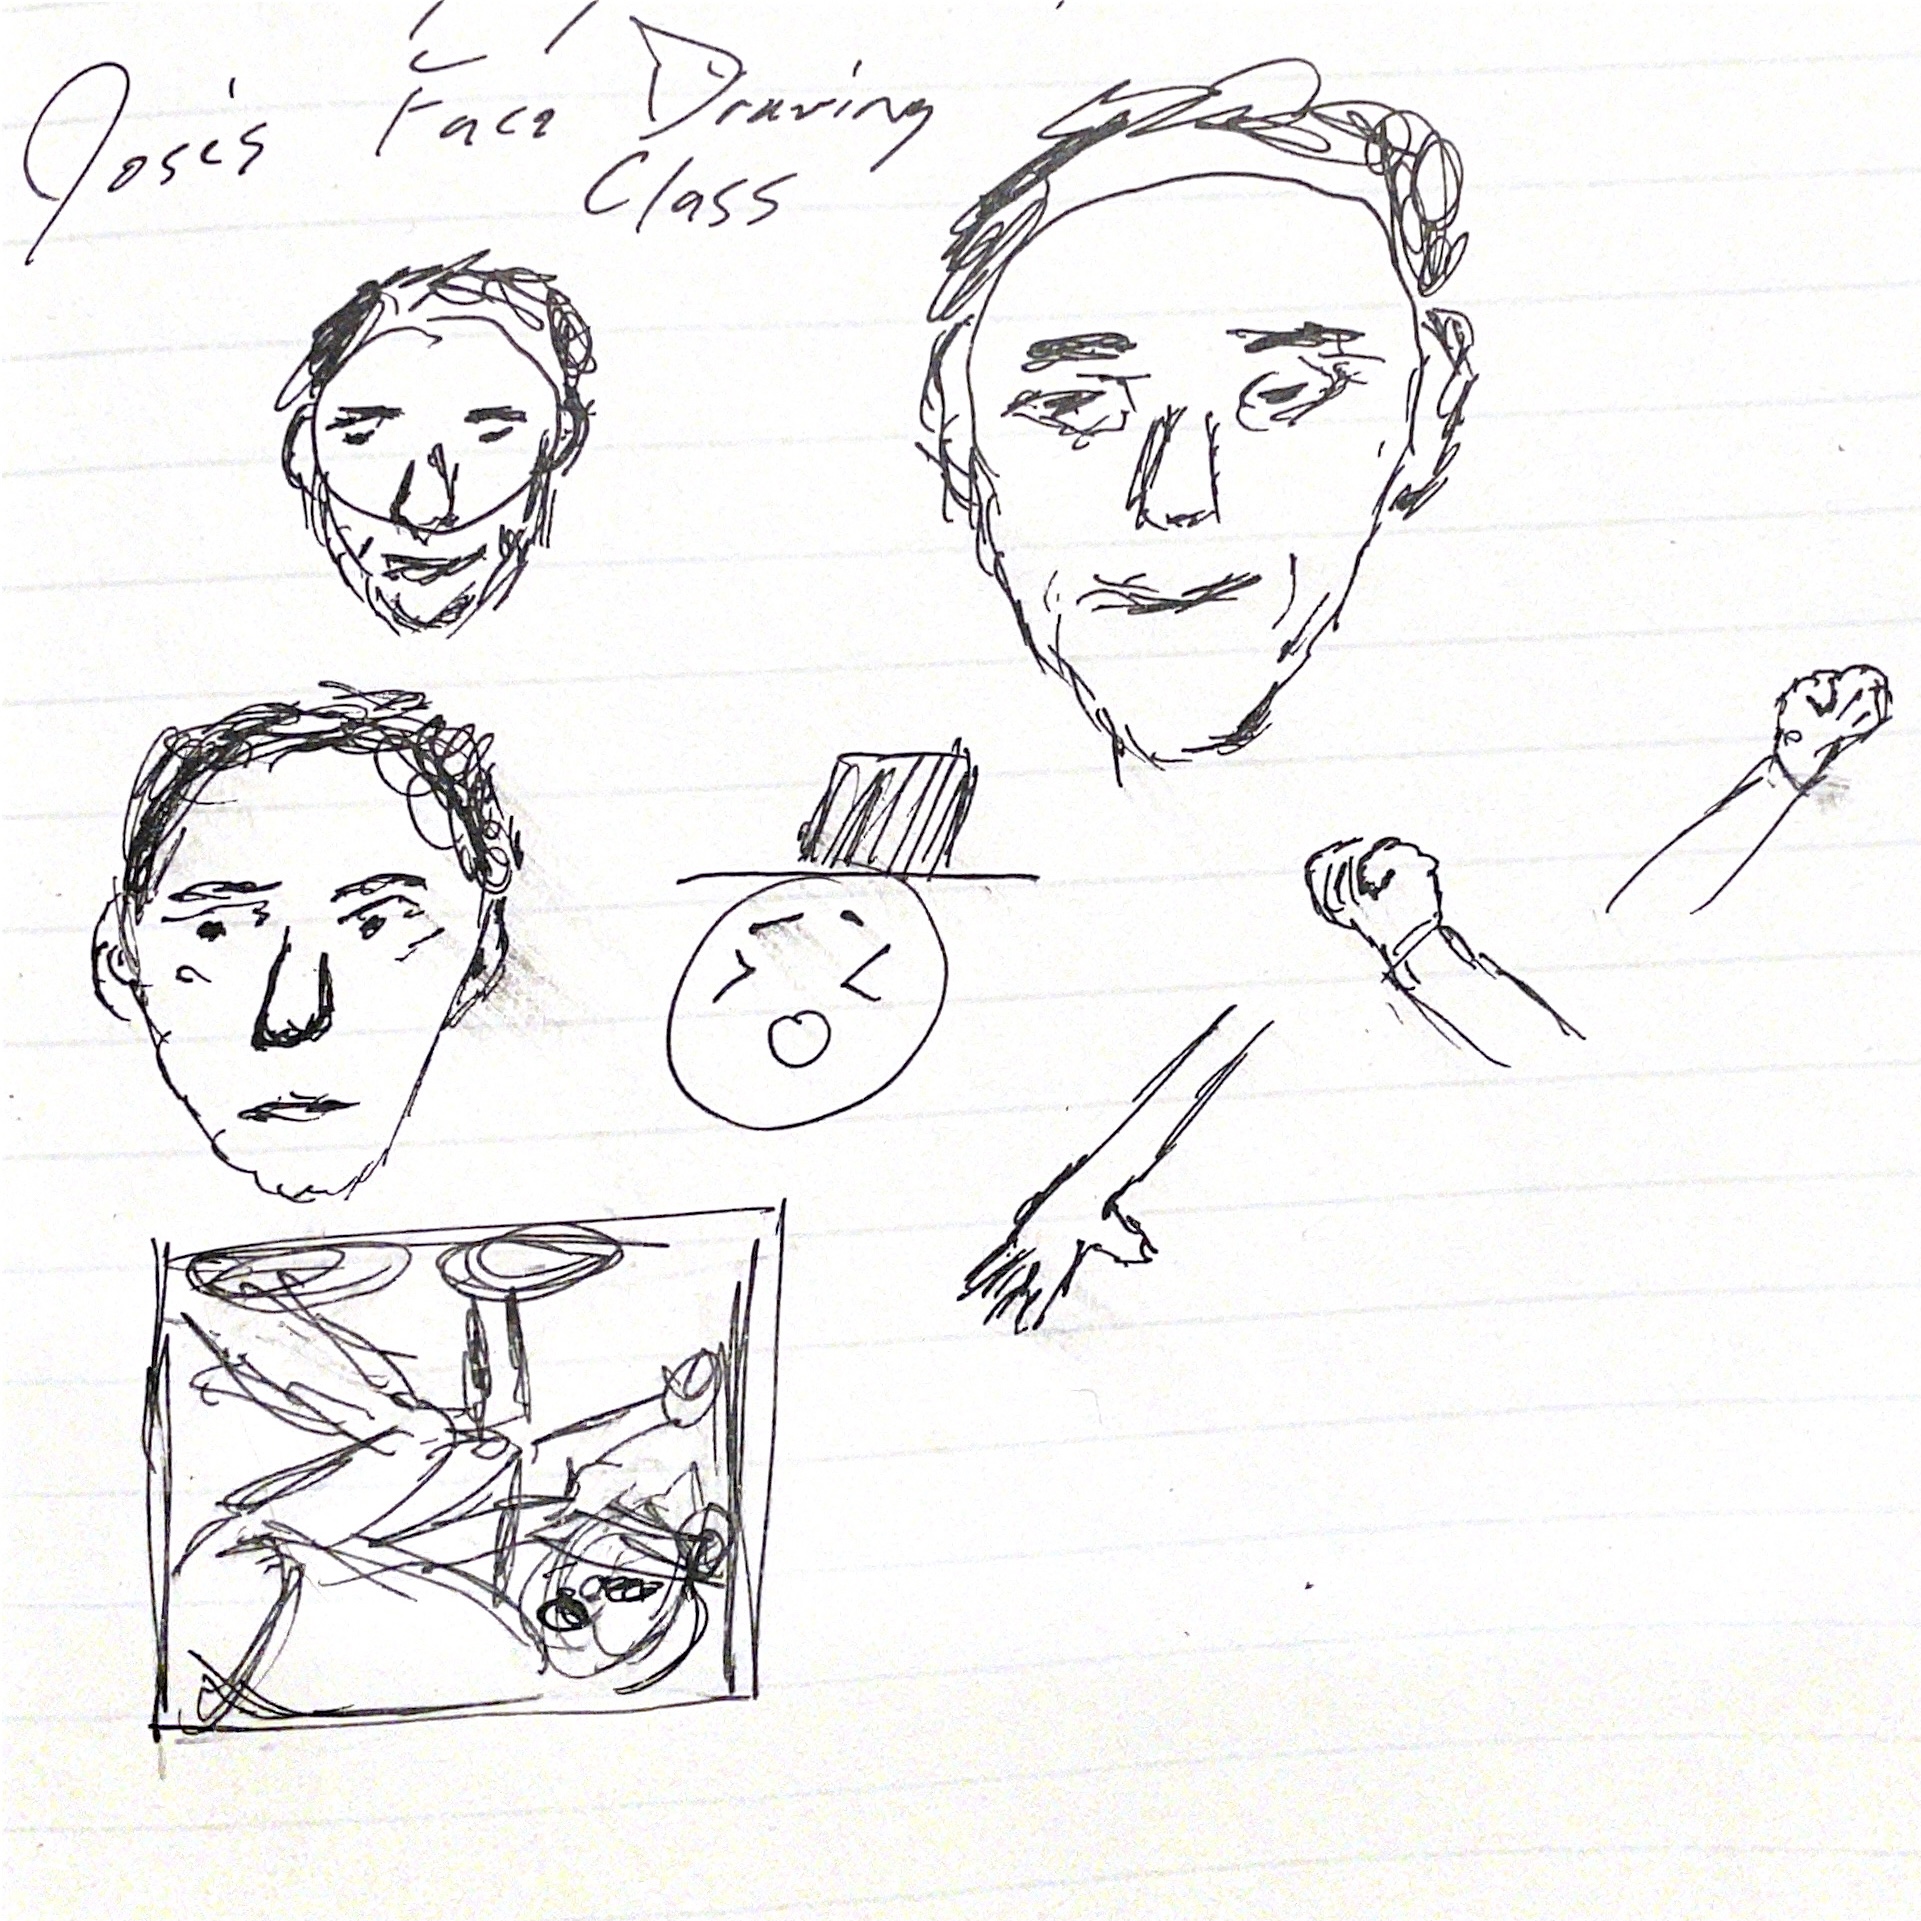 Jose's Face Drawing
Class